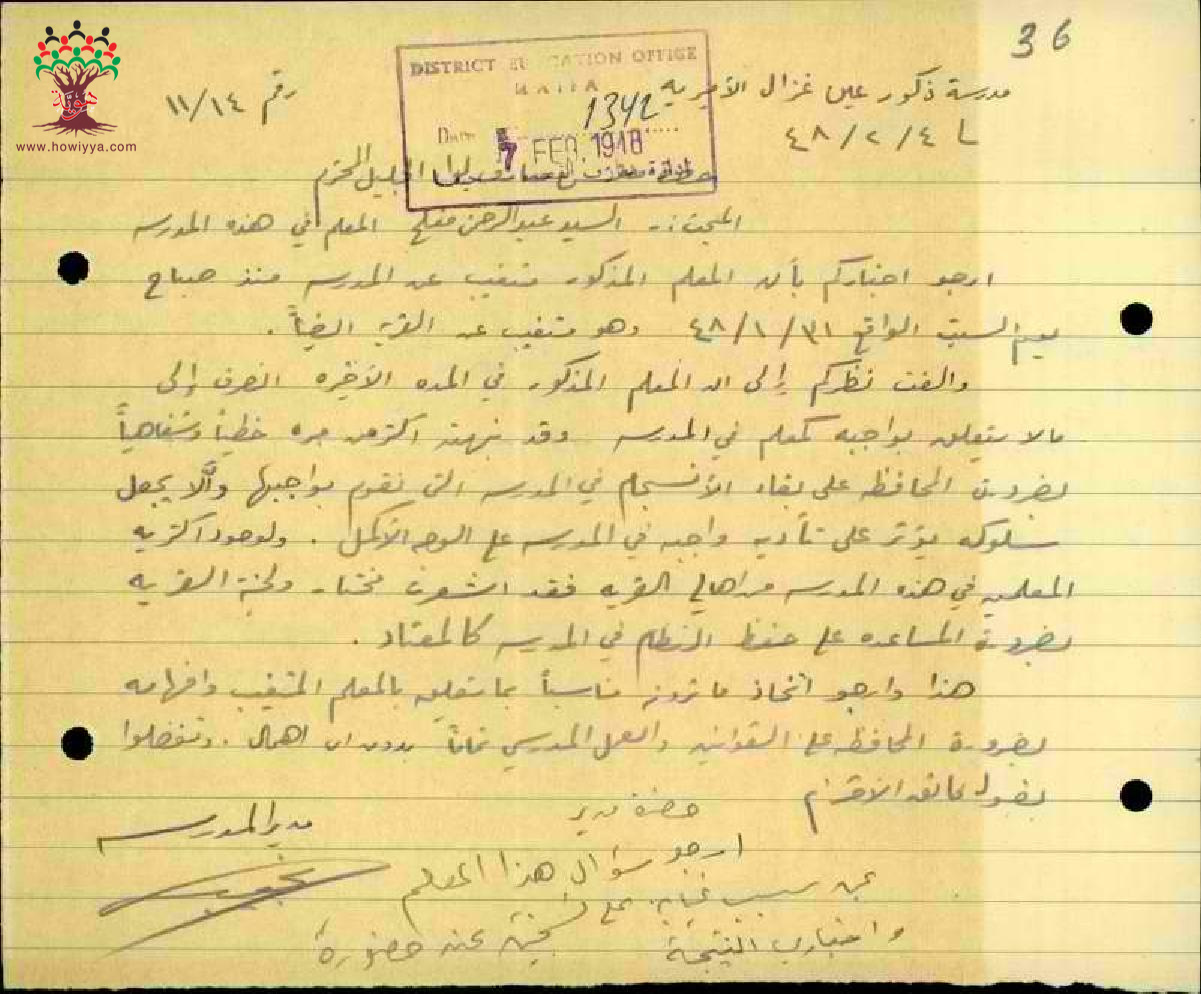 36
هوية
www.howiyya.com
DISTRICT EDUCATION OFFICE
HAIFA
1342
Date 7 FEB. 1948
مدرسة ذكور عين غزال الأميرية
رقم ١١/١٤
٤٨/٢/٤
الجليل المحترم
المبحث :- السيد عبد الرحمن مفلح المعلم في هذه المدرسه
ارجو اخباركم بأن المعلم المذكور متغيب عن المدرسه منذ صباح
يوم السبت الواقع ٤٨/١/٣١ وهو متغيب عن القرية ايضاً .
والفت نظركم إلى ان المعلم المذكور في المده الأخيره انصرف إلى
مالا يتعلق بواجبه كمعلم في المدرسه وقد نبهته اكثر من مره خطياً وشفاهياً
بضرورة المحافظه على بقاء الأنسجام في المدرسه التي نقوم بواجبها وألّا يجعل
سلوكه يؤثر على تأدية واجبه في المدرسه على الوجه الأكمل . ولوجود اكثرية
المعلمين في هذه المدرسه من اهالي القريه فقد اشعرت مختار ولجنة القريه
بضرورة المساعده على حفظ النظام في المدرسه كالمعتاد .
هذا وارجو اتخاذ ما ترونه مناسباً بما يتعلق بالمعلم المتغيب وافهامه
بضرورة المحافظه على القوانين والعمل المدرسي تماماً بدون اى اهمال . وتفضلوا
بقبول فائق الاحترام
مدير المدرسه
حضرة مدير
ارجو سؤال هذا المعلم
عن سبب غيابه
واخباري النتيجة